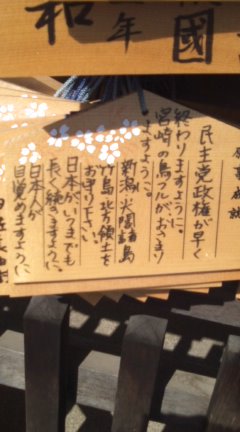 和
國
年
民主党政権が早く
終わりますように
宮崎の鳥フルがおさまり
ますように。
新潟、尖閣諸島
竹島、北方領土を
お守り下さい。
日本がいつまでも
長く続きますように
日本人が
目覚めますように